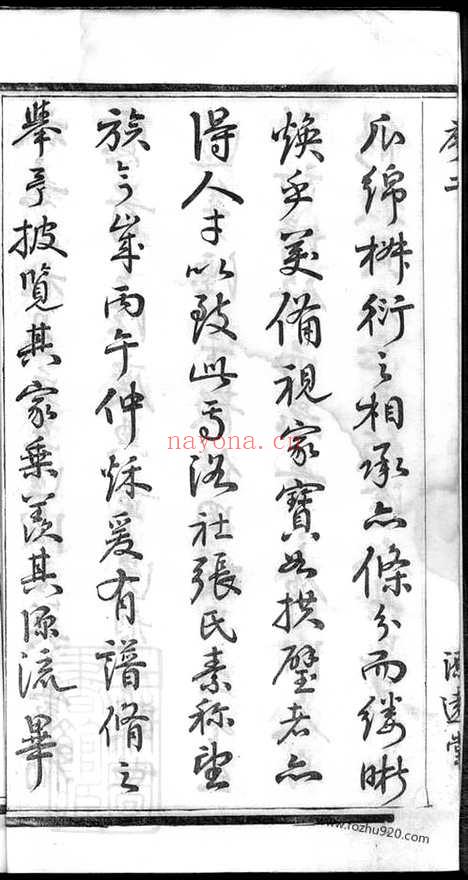 序二
源遠堂
瓜綿椒衍之相承亦條分而縷晰
煥乎美備視家寶如拱璧者亦
得人才以致此焉洛社張氏素称望
族今歲丙午仲秌爰有譜脩之
舉予披覽其家乗羨其源流畢
nayona.cn
www.fozhu920.com